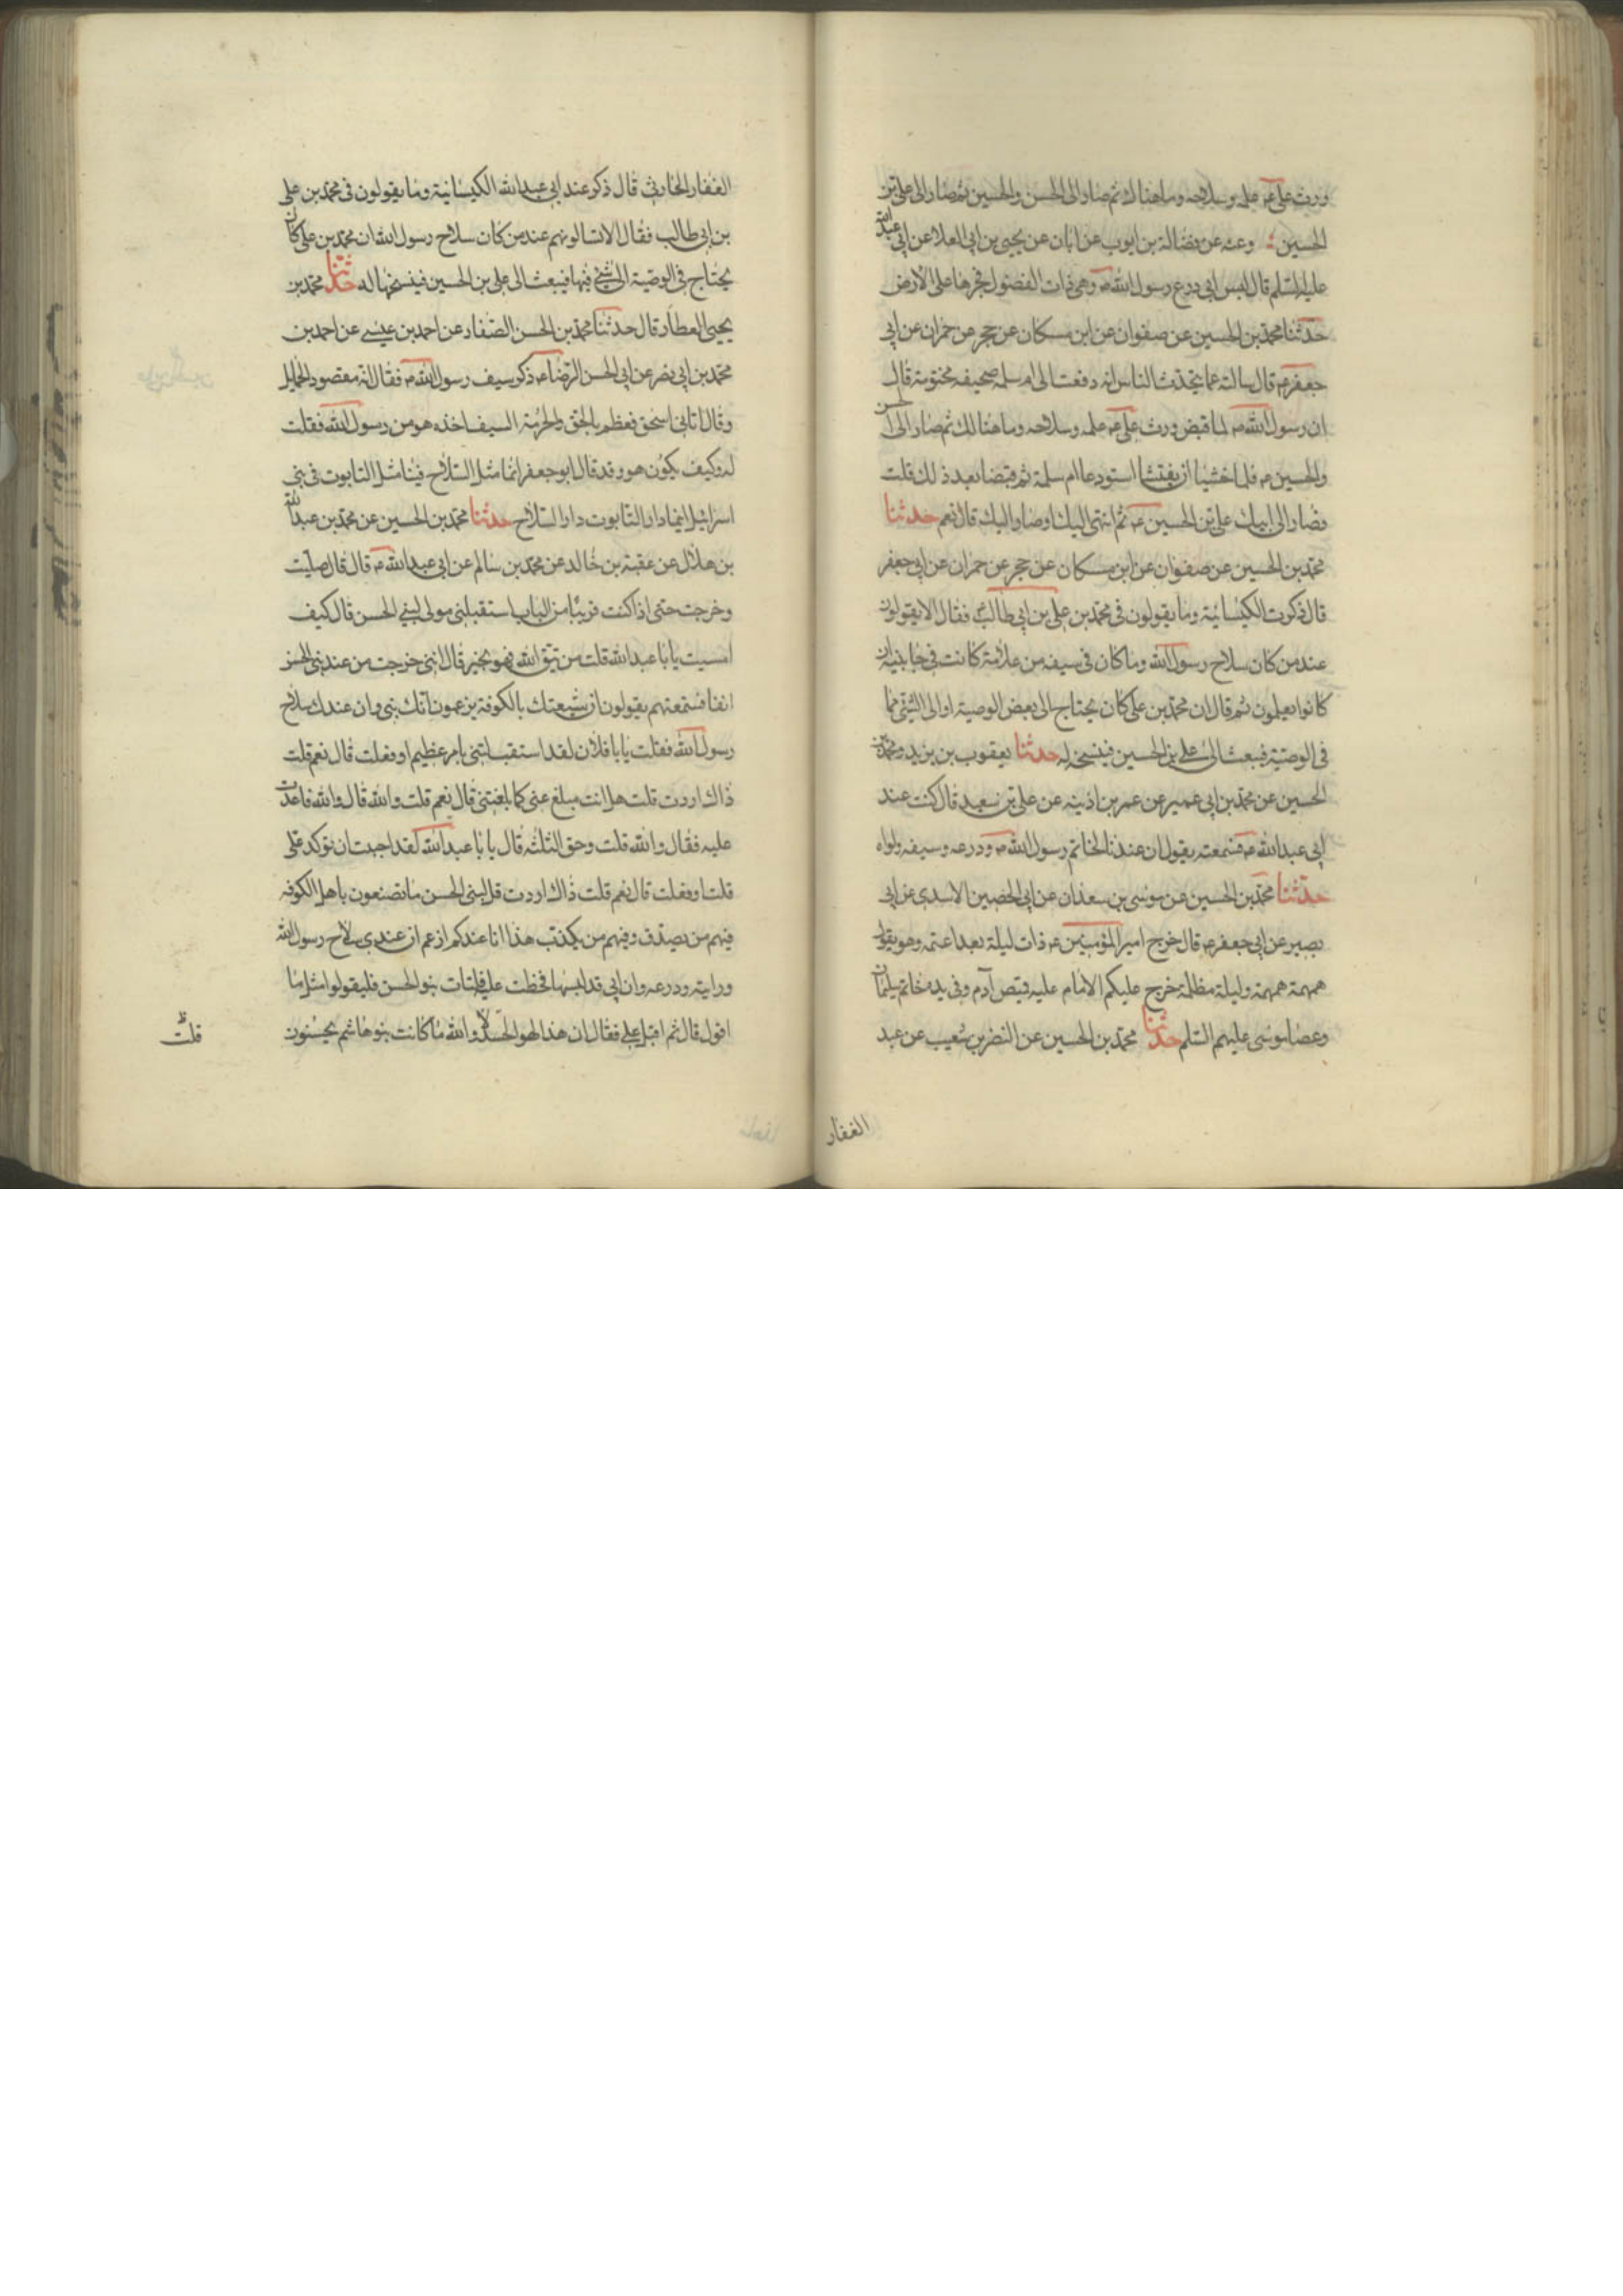 ورث علی ع علمه وسلاحه وما هناك ثم صار الی الحسن والحسین ثم صار الی علی بن
الحسین وعنه عن فضالة بن ایوب عن ابان عن یحیی بن ابی العلا عن ابی عبد الله
علیه السلم قال لبس ابی درع رسول الله ص وهی ذات الفضول فجرها علی الارض
حدثنا محمد بن الحسین عن صفوان عن ابن مسکان عن حجر عن حمران عن ابی
جعفر ع قال سالته عما یتحدث الناس انه دفعت الی ام سلمه صحیفه مختومة قال
ان رسول الله ص لما قبض ورث علی ع علمه وسلاحه وما هنالك ثم صار الی الحسن
والحسین ع فلما خشیا ان یفتشا استودعا ام سلمة ثم قبضا بعد ذلك قلت
فصار الی ابیك علی بن الحسین ع ثم انتهی الیك او صار الیك قال نعم حدثنا
محمد بن الحسین عن صفوان عن ابن مسکان عن حجر عن حمران عن ابی جعفر
قال ذکرت الکیسانیة وما یقولون فی محمد بن علی بن ابی طالب ع فقال الا یقولون
عند من کان سلاح رسول الله وما کان فی سیفه من علامة کانت فی جانبیه ان
کانوا یعلمون ثم قال ان محمد بن علی کان یحتاج الی بعض الوصیة او الی الشیٔ مما
فی الوصیة فیبعث الی علی بن الحسین فینسخه له حدثنا یعقوب بن یزید ومحمد بن
الحسین عن محمد بن ابی عمیر عن عمر بن اذینه عن علی بن سعید قال کنت عند
ابی عبد الله ع فسمعته یقول ان عندنا لخاتم رسول الله ص ودرعه وسیفه ولواه
حدثنا محمد بن الحسین عن موسی بن سعدان عن ابی الحصین الاسدی عن ابی
بصیر عن ابی جعفر ع قال خرج امیر المؤمنین ع ذات لیلة بعد عتمه وهو یقول
همهمة همهمة ولیلة مظلمة خرج علیکم الامام علیه قمیص آدم وفی یده خاتم سلیمان
وعصا موسی علیهم السلم حدثنا محمد بن الحسین عن النضر بن شعیب عن عبد
الغفار
الغفار الحارثی قال ذکر عند ابی عبد الله الکیسانیة وما یقولون فی محمد بن علی
بن ابی طالب فقال الا تسالونهم عند من کان سلاح رسول الله ان محمد بن علی کان
یحتاج فی الوصیة الی الشیٔ فیها فیبعث الی علی بن الحسین فینسخها له حدثنا محمد بن
یحیی العطار قال حدثنا محمد بن الحسن الصفار عن احمد بن عیسی عن احمد بن
محمد بن ابی نصر عن ابی الحسن الرضا ع ذکر سیف رسول الله ص فقال انه مقصود الحمایل
وقال اتانی اسحق فعظم بالحق والحرمة السیف اخذه هو من رسول الله فقلت
له وکیف یکون هو وقد قال ابو جعفر انما مثل السلاح فینا مثل التابوت فی بنی
اسرائیل اینما دار التابوت دار السلاح حدثنا محمد بن الحسین عن محمد بن عبد الله
بن هلال عن عقبة بن خالد عن محمد بن سالم عن ابی عبد الله ع قال قال صلیت
وخرجت حتی اذا کنت قریبا من الباب استقبلنی مولی لبنی الحسن قال کیف
امسیت یا با عبد الله قلت من یتق الله فهو بخیر قال اننی خرجت من عند بنی الحسن
انفا فسمعتهم یقولون ان شیعتك بالکوفة یزعمون انك نبی وان عندك سلاح
رسول الله فقلت یا با فلان لقد استقبلتنی بامر عظیم او فعلت قال نعم قلت
ذاك اردت قلت هل انت مبلغ عنی کما بلغتنی قال نعم قلت والله قال والله فاعدت
علیه فقال والله قلت وحق الثلثة قال یا با عبد الله لقد احببت ان توکد علی
قلت او فعلت قال نعم قلت ذاك اردت قل لبنی الحسن ما تصنعون باهل الکوفه
فیهم من یصدق وفیهم من یکذب هذا انا عندکم ازعم ان عندی سلاح رسول الله
ورایته ودرعه وان ابی قد لبسها فخطت علیه فلتات بنو الحسن فلیقولوا مثل ما
اقول قال ثم اقبل علی فقال ان هذا لهو الحسد لا والله ما کانت بنو هاشم یحسنون
قلت